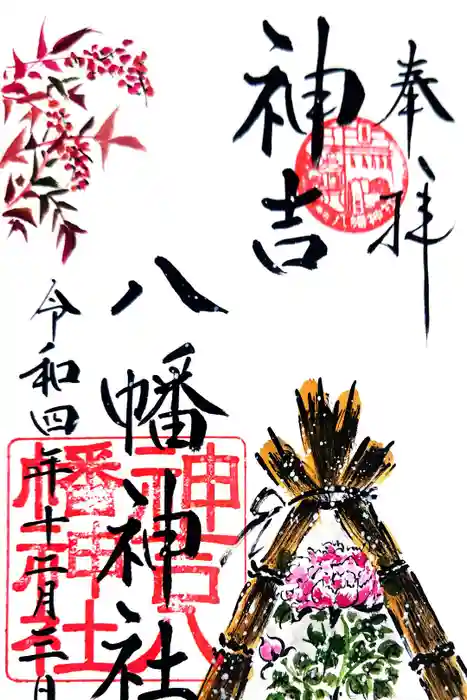 奉拝
神吉
八幡神社
令和四年十二月二日
神吉八
幡神社